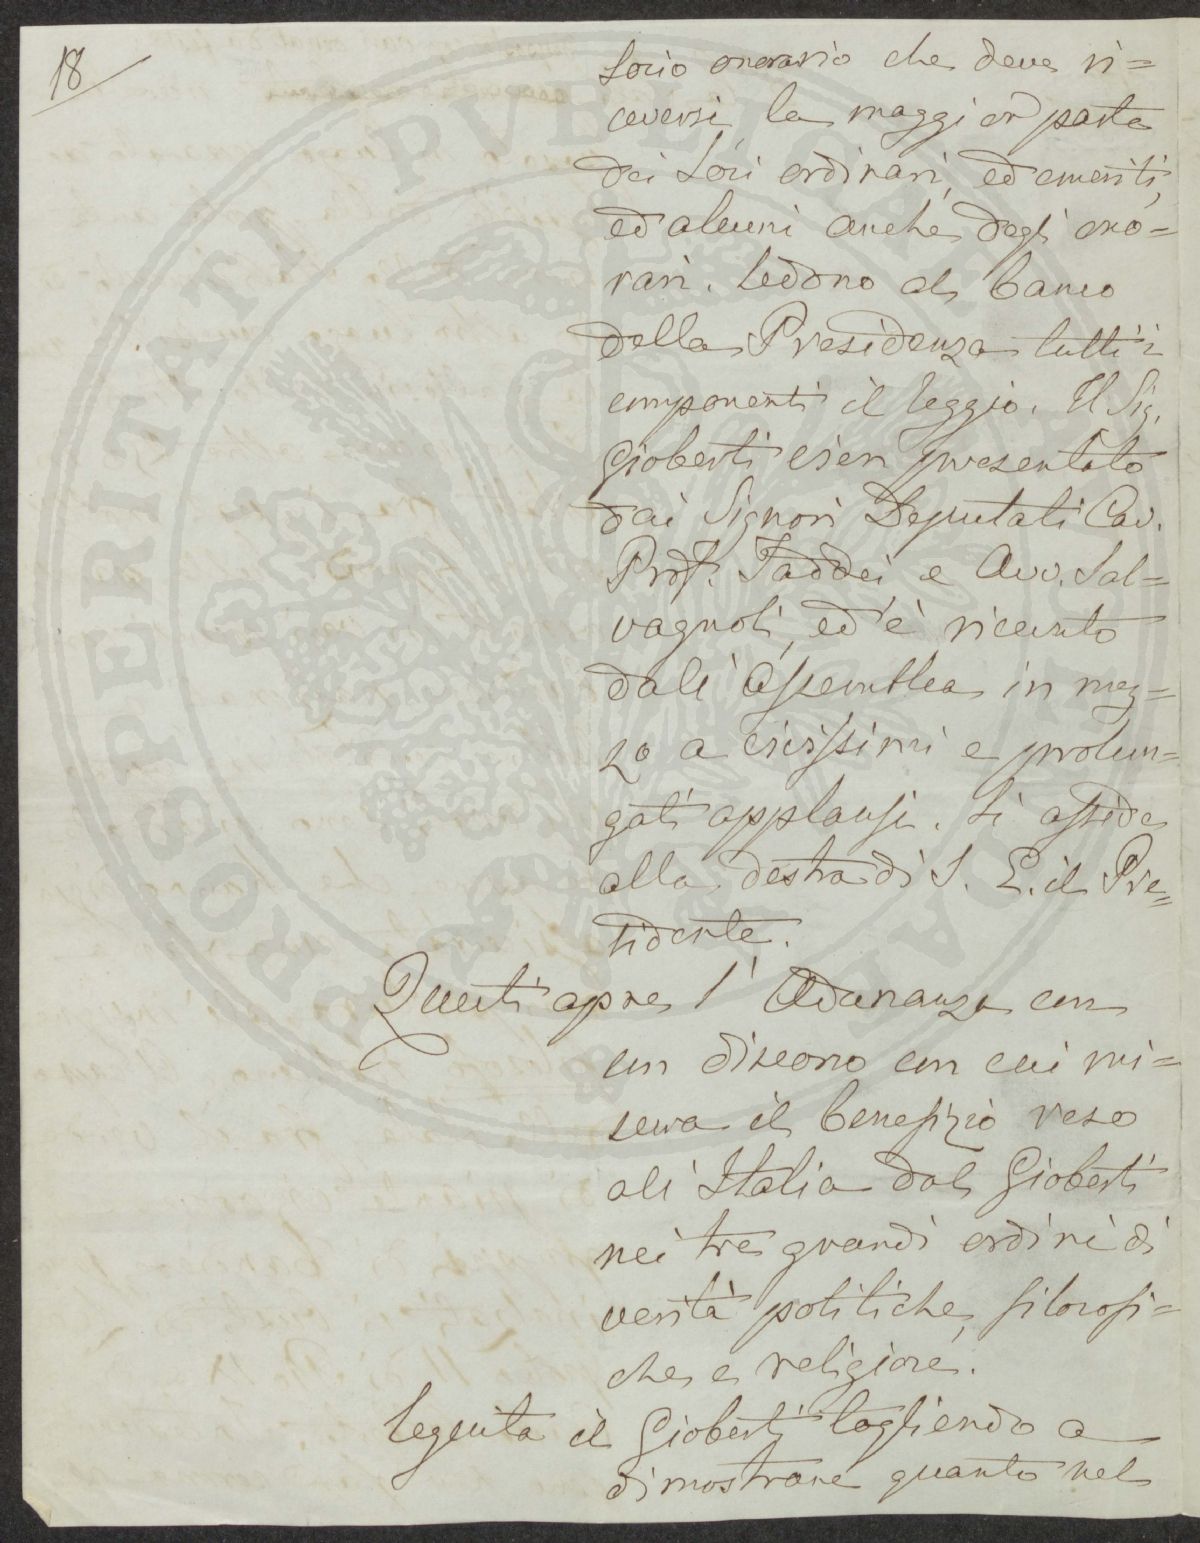 18
Socio onorario che deve ri=
ceversi la maggior parte
dei Soci ordinari, ed emeriti,
ed alcuni anche degli ono=
rari. Siedono al banco
della Presidenza tutti i
componenti il Seggio. Il Sig.
Gioberti vien presentato
dai Signori Deputati Cav.
Prof. Taddei e Avv. Sal=
vagnoli, ed è ricevuto
dall'Assemblea in mez=
zo a vivissimi e prolun=
gati applausi. Si asside
alla destra di S. E. il Pre=
sidente.
Questi apre l'Adunanza con
un discorso con cui mi=
sura il benefizio reso
all'Italia dal Gioberti
nei tre grandi ordini di
verità politiche, filosofi=
che e religiose.
Seguita il Gioberti togliendo a
dimostrare quanto nel
PROSPERITATI PVBLICAE